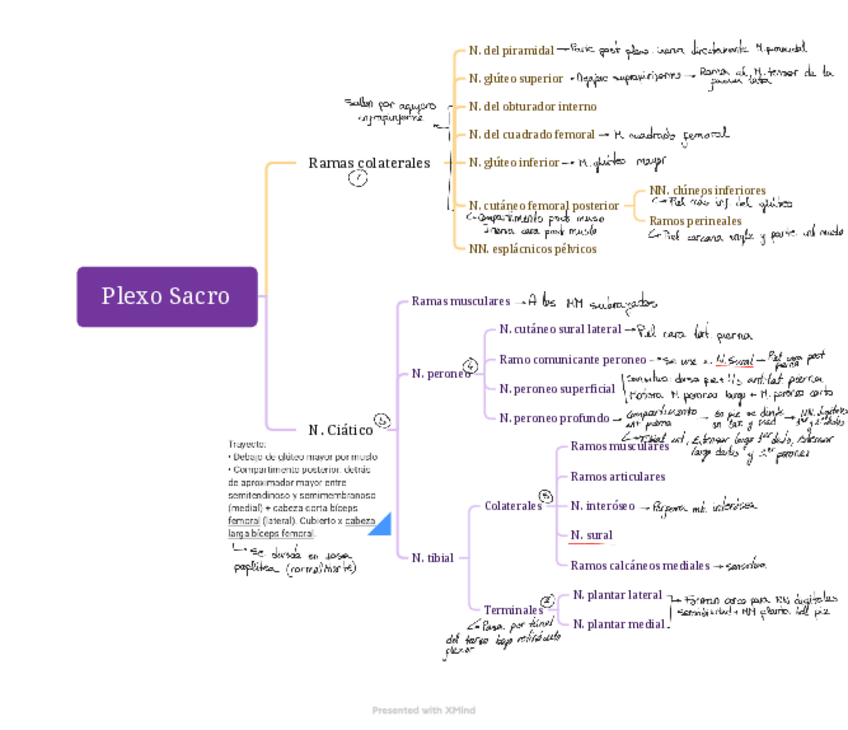 N. del piramidal → Parte post plexo. inerva directamente M. piramidal
N. glúteo superior • Agujero suprapiriforme → Rama al M. tensor de la
fascia lata
Salen por agujero
infrapiriforme
N. del obturador interno
N. del cuadrado femoral → M cuadrado femoral
Ramas colaterales
N. glúteo inferior → M. glúteo mayor
NN. clúneos inferiores
→ Piel más inf. del glúteo
N. cutáneo femoral posterior
Compartimento post muslo
Inerva cara post muslo
Ramos perineales
NN. esplácnicos pélvicos
Plexo Sacro
Ramas musculares → A los MM subrayados
N. cutáneo sural lateral → Piel cara lat. pierna
Ramo comunicante peroneo → Se une a N. Sural → Piel cara post
pierna
N. peroneo
N. peroneo superficial
Sensitivo: dorso pie + 1/3 ant. lat pierna
Motora: M. peroneo largo + M. peroneo corto
N. peroneo profundo → Compartimento
ant pierna
→ En pie se divide
en lat. y med
Tibial ant, Extensor largo 1er dedo, extensor
largo dedos y 3er peroneo
N. Ciático
Trayecto:
• Debajo de glúteo mayor por muslo
• Compartimente posterior: detrás
de aproximador mayor entre
semitendinoso y semimembranoso
(medial) + cabeza corta bíceps
femoral (lateral). Cubierto x cabeza
larga bíceps femoral.
→ Se divide en fosa
poplítea (normalmente)
Ramos musculares
Ramos articulares
Colaterales
N. interóseo
N. sural
Ramos calcáneos mediales → sensitiva
N. tibial
Terminales
→ Pasa por túnel
del tarso bajo retináculo
flexor
N. plantar lateral
N. plantar medial
→ Forman arco para NN digitales
sensibilidad + MM planta del pie
Presented with XMind